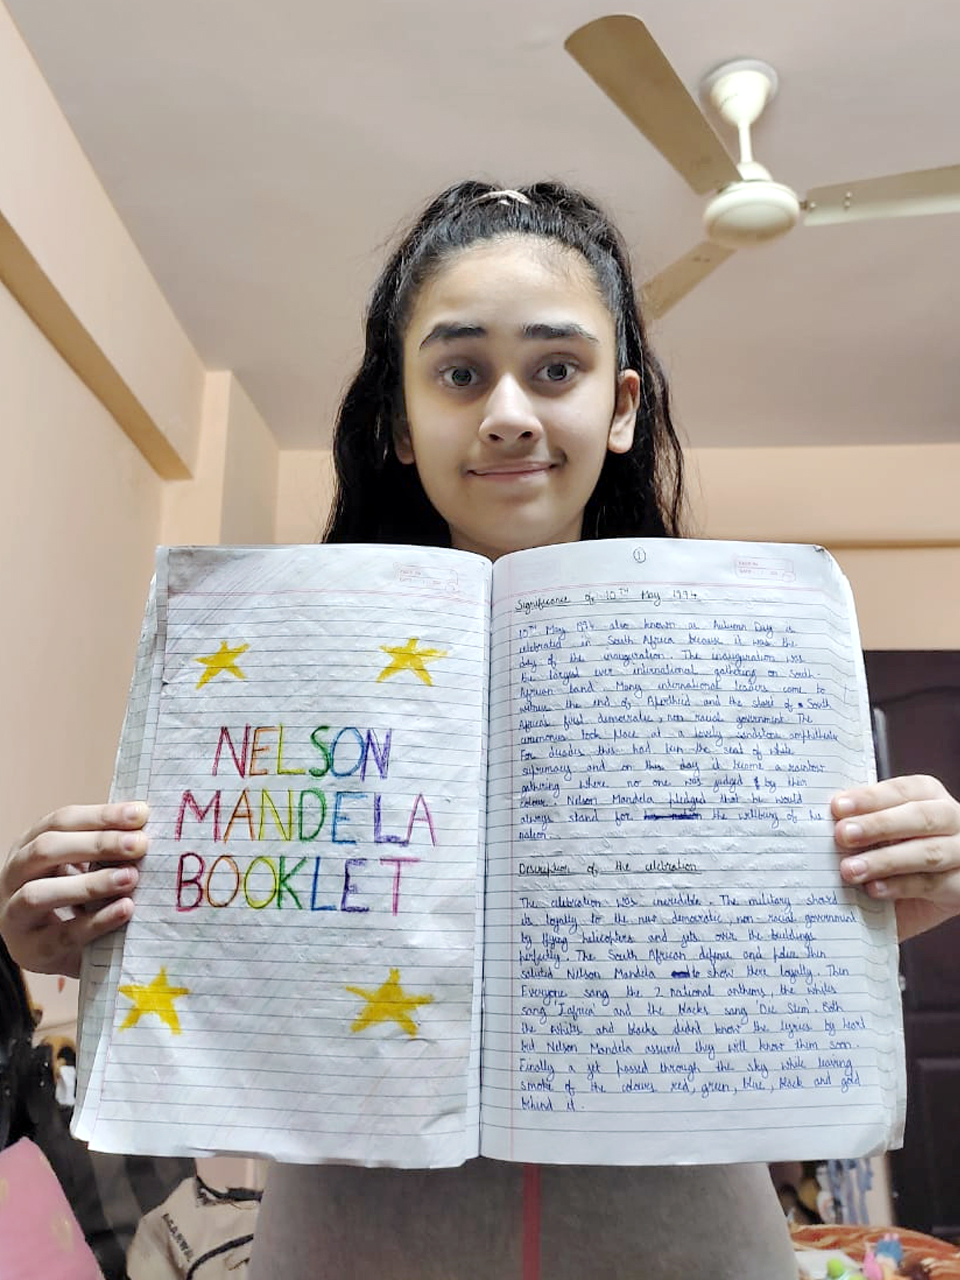 NELSON
MANDELA
BOOKLET
1
Significance of 10TH May 1994
10TH May 1994 also known as Autumn Day is
celebrated in South Africa because it was the
day of the inauguration. The inauguration was
the largest ever international gathering on South
African land. Many international leaders came to
witness the end of Apartheid and the start of South
Africas first democratic, non racial government. The
ceremonies took place at a lovely sandstone amphitheatre
For decades this had been the seat of white
supremacy and on this day it became a rainbow
gathering where no one was judged by their
colour. Nelson Mandela pledged that he would
always stand for the wellbeing of his
nation.
Description of the celebration
The celebration was incredible. The military showed
its loyalty to the new democratic, non-racial government
by flying helicopters and jets over the buildings
perfectly. The South African defense and police then
saluted Nelson Mandela to show there loyalty. Then
Everyone sang the 2 national anthems, the whites
sang and the blacks sang 'Die Stem'. Both
the whites and blacks didn't know the lyrics by heart
but Nelson Mandela assured they will know them soon.
Finally a jet passed through the sky while leaving
smoke of the colours red, green, blue, black and gold
behind it.
AGARWAL